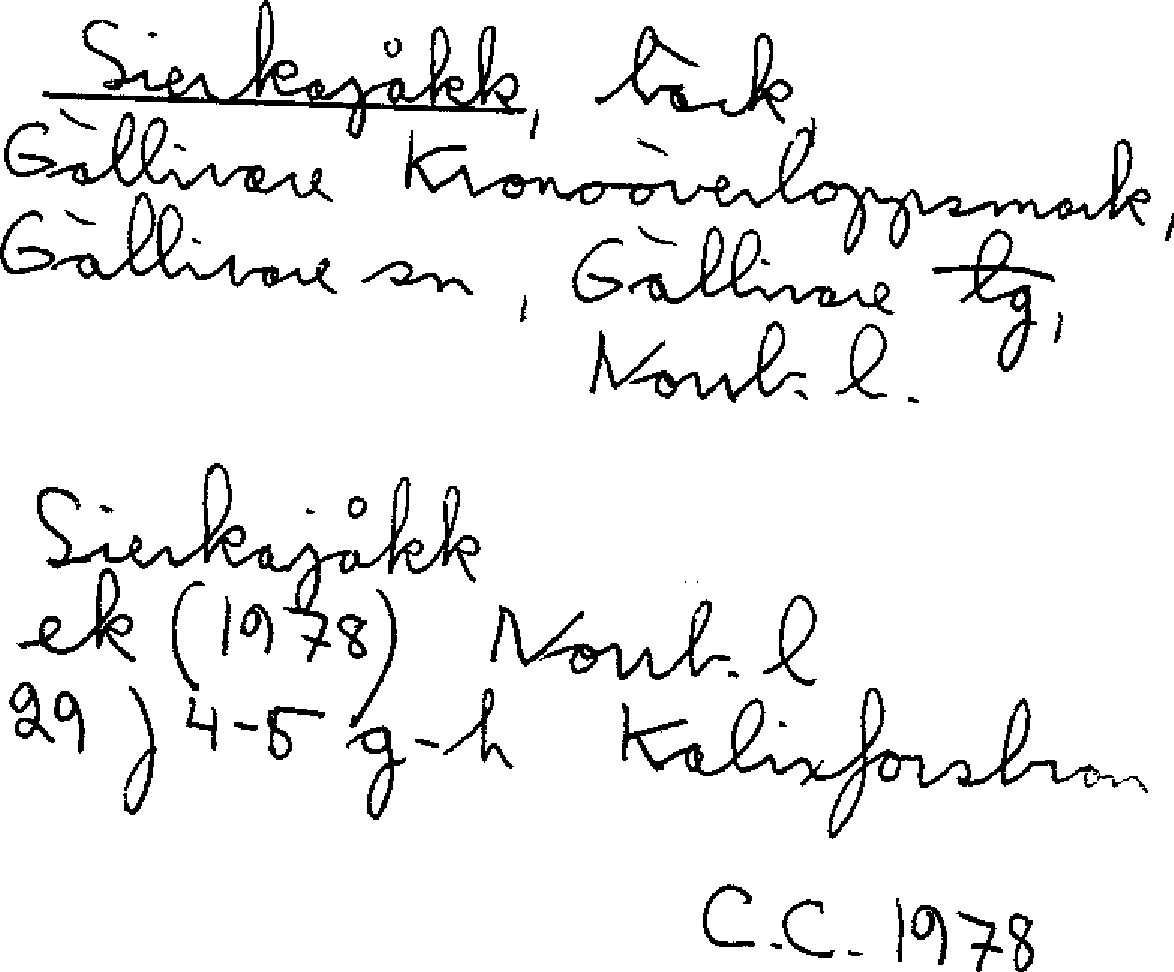 Sierkajåkk, bäck,
Gällivare Kronoöverloppsmark,
Gällivare sn, Gällivare lg,
Norrb. l.
Sierkajåkk
ek (1978) Norrb. l
29 J 4-5 g-h Kalixforsbron
C.C. 1978